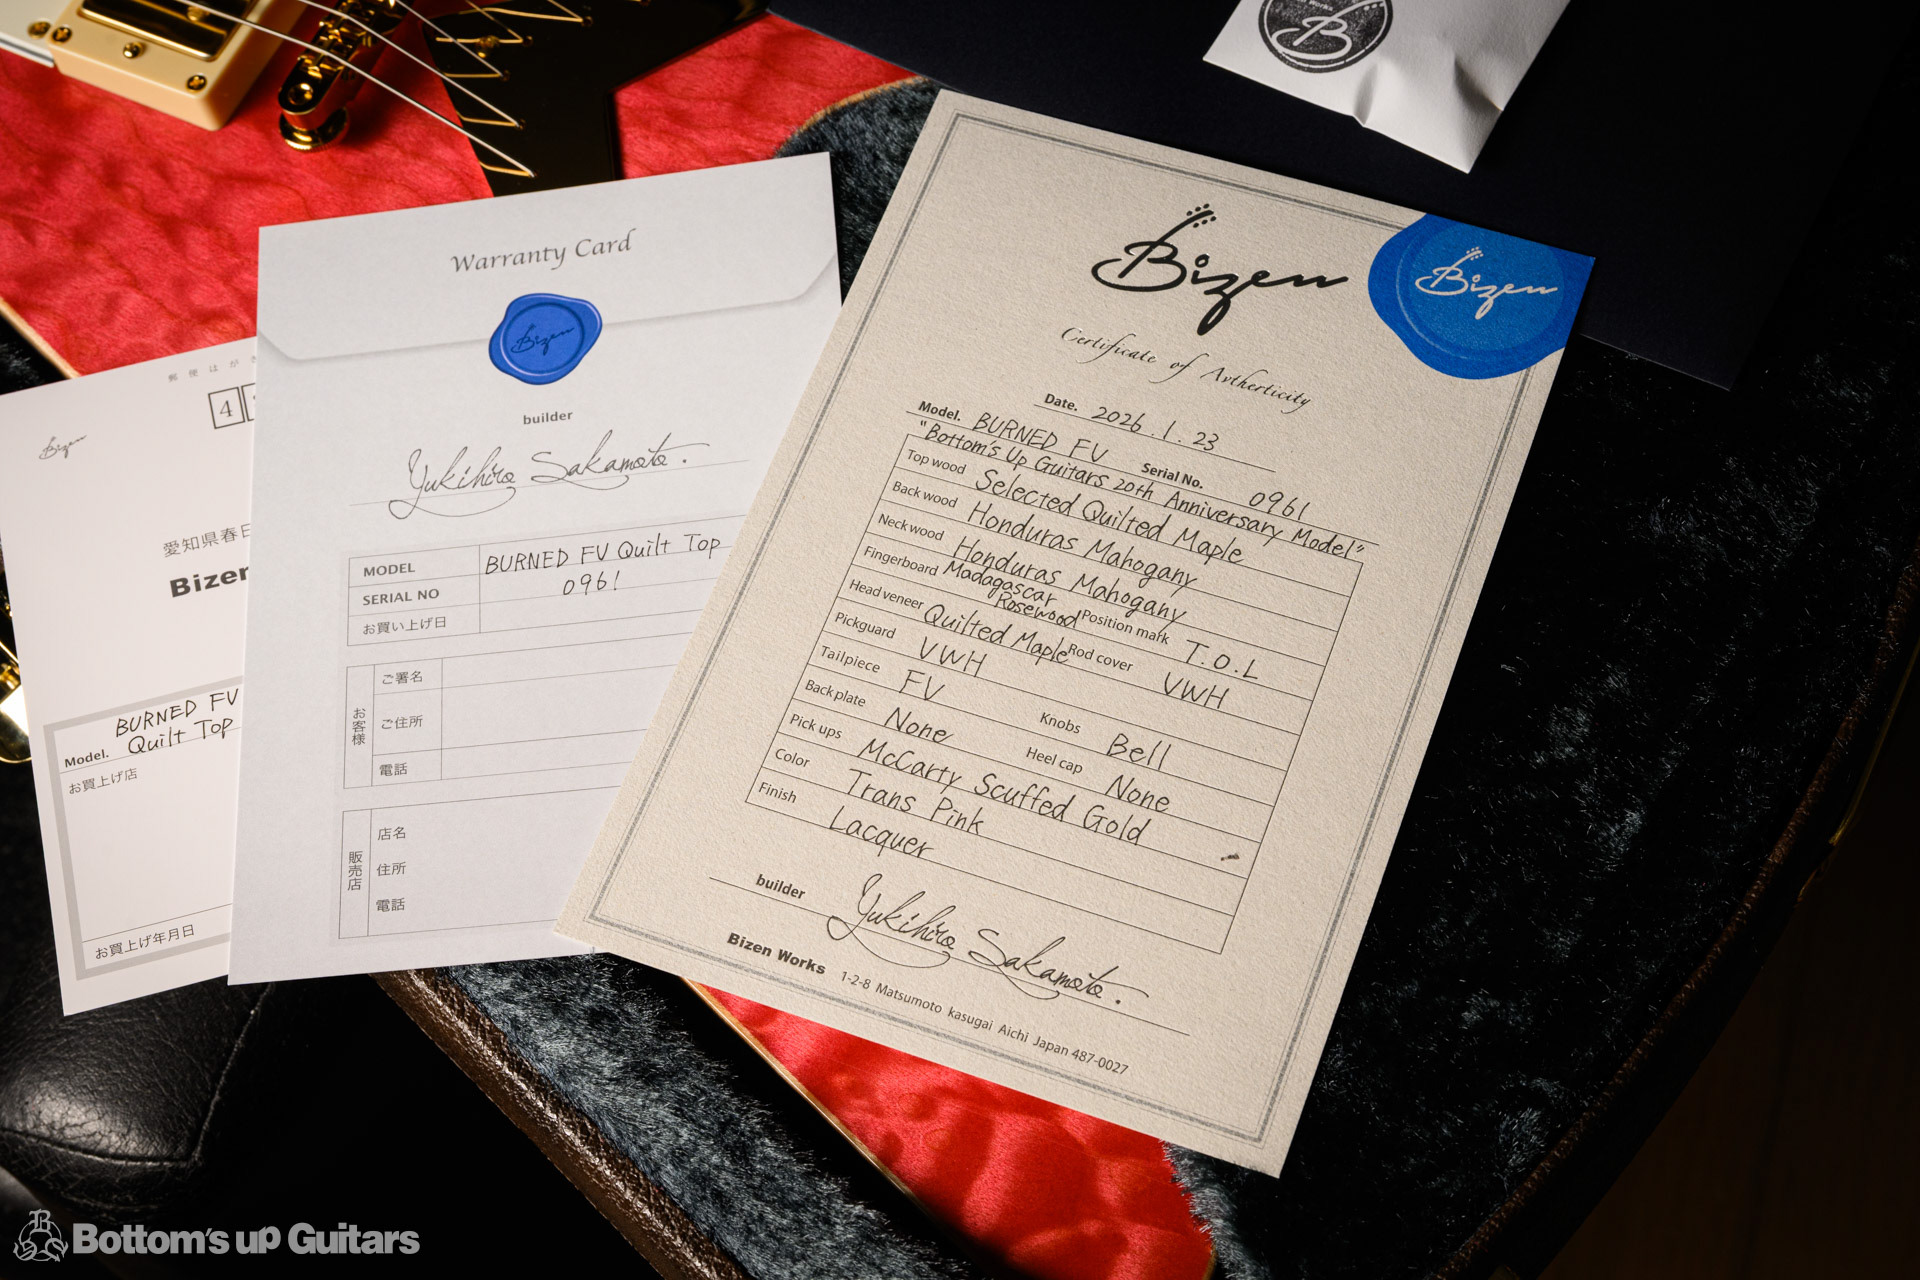 Bizen
郵便はがき
4
愛知県春日
Bizen
Model. BURNED FV
Quilt Top
お買上げ店
お買上げ年月日
Warranty Card
Bizen
builder
Yukihiro Sakamoto.
MODEL BURNED FV Quilt Top
SERIAL NO 0961
お買い上げ日
お客様
ご署名
ご住所
電話
販売店
店名
住所
電話
B
Bizen
Bizen
Certificate of Avtherticity
Date. 2026.1.23
Model. BURNED FV Serial No. 0961
"Bottom's Up Guitars 20th Anniversary Model"
Top wood Selected Quilted Maple
Back wood Honduras Mahogany
Neck wood Honduras Mahogany
Fingerboard Madagascar Rosewood Position mark T.O.L
Head veneer Quilted Maple Rod cover VWH
Pickguard VWH
Tailpiece FV Knobs Bell
Back plate None Heel cap None
Pick ups McCarty Scuffed Gold
Color Trans Pink
Finish Lacquer
builder Yukihiro Sakamoto.
Bizen Works 1-2-8 Matsumoto kasugai Aichi Japan 487-0027
Bottom's up Guitars